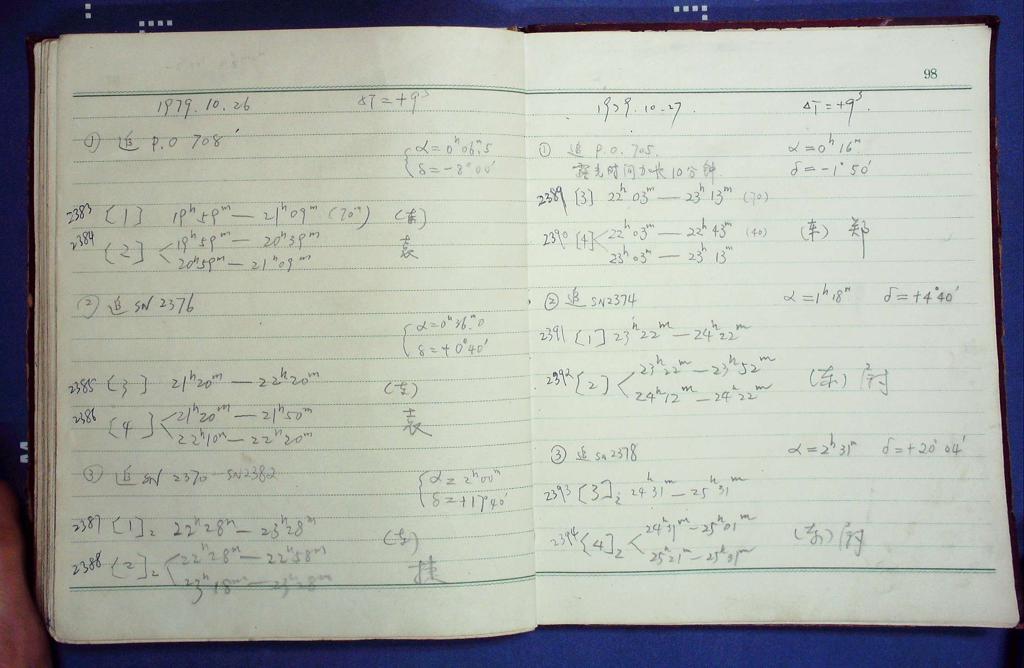 1979.10.26 ΔT=+9ˢ
① 追 P.O 708'
α=0ʰ06ᵐ.5
δ=-2°00'
2383 [1] 19ʰ59ᵐ — 21ʰ09ᵐ (70ᵐ) (东)
2384 [2] 19ʰ59ᵐ — 20ʰ39ᵐ 袁
20ʰ59ᵐ — 21ʰ09ᵐ
② 追 SN 2376
α=0ʰ36ᵐ.0
δ=+0°40'
2385 [3] 21ʰ20ᵐ — 22ʰ20ᵐ (东)
2386 [4] 21ʰ20ᵐ — 21ʰ50ᵐ 袁
22ʰ10ᵐ — 22ʰ20ᵐ
③ 追 SN 2370 - SN2382
α=2ʰ00ᵐ
δ=+17°40'
2387 [1]₂ 22ʰ28ᵐ — 23ʰ28ᵐ (东)
2388 [2]₂ 22ʰ28ᵐ — 22ʰ58ᵐ
23ʰ18ᵐ — 23ʰ28ᵐ
98
1979.10.27 ΔT=+9ˢ.
① 追 P.O. 705. α=0ʰ16ᵐ
露光时间加长10分钟. δ=-1°50'
2389 [3] 22ʰ03ᵐ — 23ʰ13ᵐ (70)
2390 [4] 22ʰ03ᵐ — 22ʰ43ᵐ (40) (东) 郑
23ʰ03ᵐ — 23ʰ13ᵐ
② 追 SN2374 α=1ʰ18ᵐ δ=+4°40'
2391 [1] 23ʰ22ᵐ — 24ʰ22ᵐ
2392 [2] 23ʰ22ᵐ — 23ʰ52ᵐ (东)
24ʰ12ᵐ — 24ʰ22ᵐ
③ 追 SN2378 α=2ʰ31ᵐ δ=+20°04'
2393 [3]₂ 24ʰ31ᵐ — 25ʰ31ᵐ
2394 [4]₂ 24ʰ31ᵐ — 25ʰ01ᵐ (东)
25ʰ21ᵐ — 25ʰ31ᵐ